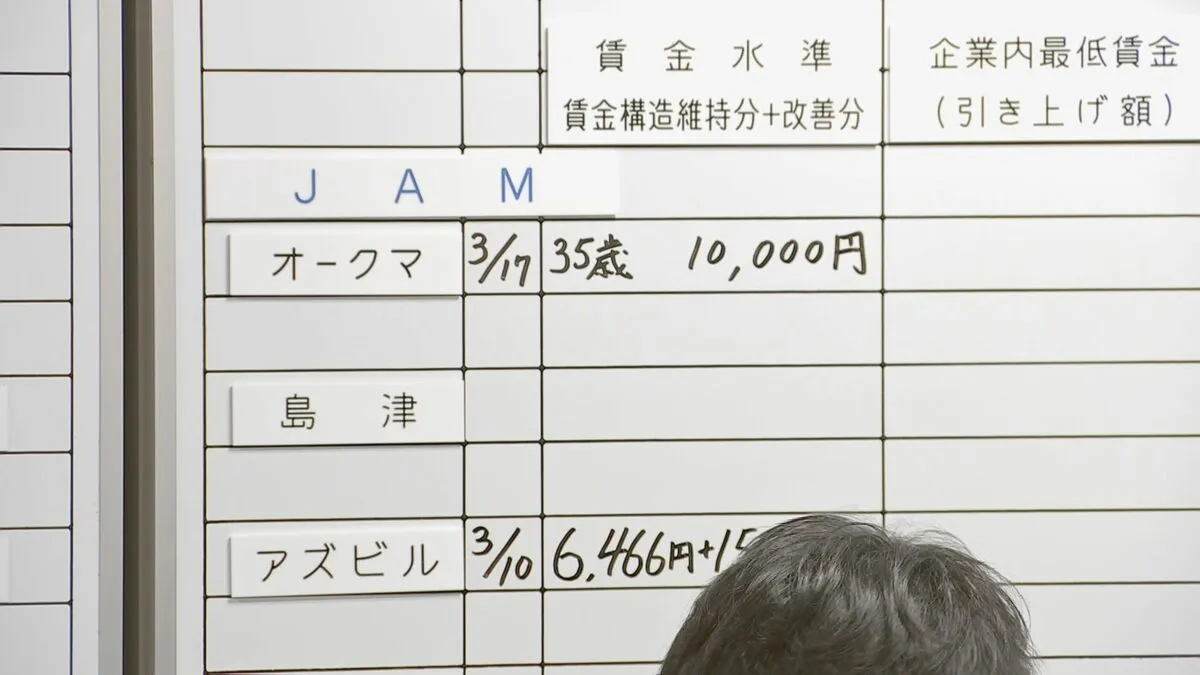 賃金水準 企業内最低賃金
賃金構造維持分+改善分 (引き上げ額)
JAM
オークマ 3/17 35歳 10,000円
島津
アズビル 3/10 6,466円+15